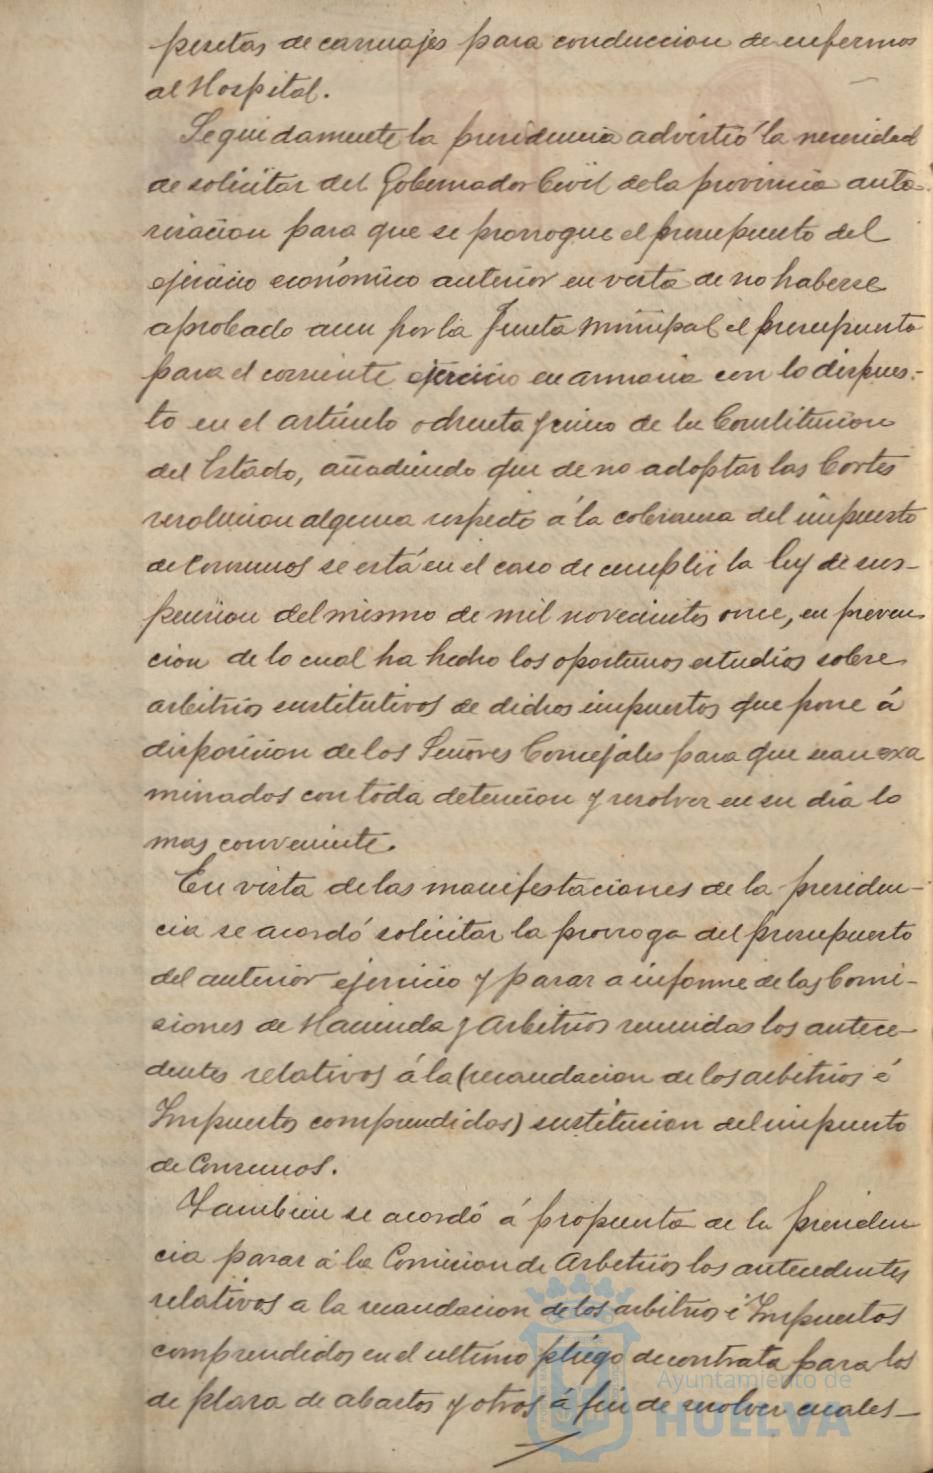 pesetas de carruajes para conduccion de enfermos
al Hospital.
Seguidamente la presidencia advirtió la necesidad
de solicitar del Gobernador Civil de la provincia auto-
rizacion para que se prorrogue el presupuesto del
ejercicio económico anterior en vista de no haberse
aprobado aun por la Junta municipal el presupuesto
para el corriente ejercicio en armonia con lo dispues-
to en el artículo ochenta y cinco de la Constitucion
del Estado, añadiendo que de no adoptar las Cortes
resolucion alguna respecto á la cobranza del impuesto
de Consumos se está en el caso de cumplir la ley de sus-
pension del mismo de mil novecientos once, en preven
cion de lo cual ha hecho los oportunos estudios sobre
arbitrios sustitutivos de dichos impuestos que pone á
disposicion de los Señores Concejales para que sean exa
minados con toda detencion y resolver en su dia lo
mas conveniente.
En vista de las manifestaciones de la presiden-
cia se acordó solicitar la prorroga del presupuesto
del anterior ejercicio y pasar a informe de las Comi-
siones de Hacienda y Arbitrios reunidas los antece-
dentes relativos á la (recaudacion de los arbitrios é
Impuestos comprendidos) sustitucion del impuesto
de Consumos.
Tambien se acordó á propuesta de la presiden
cia pasar á la Comision de Arbitrios los antecedentes
relativos a la recaudacion de los arbitrios é Impuestos
comprendidos en el ultimo pliego de contrata para los
de plaza de abastos y otros á fin de resolver cuales-
Ayuntamiento de
HUELVA